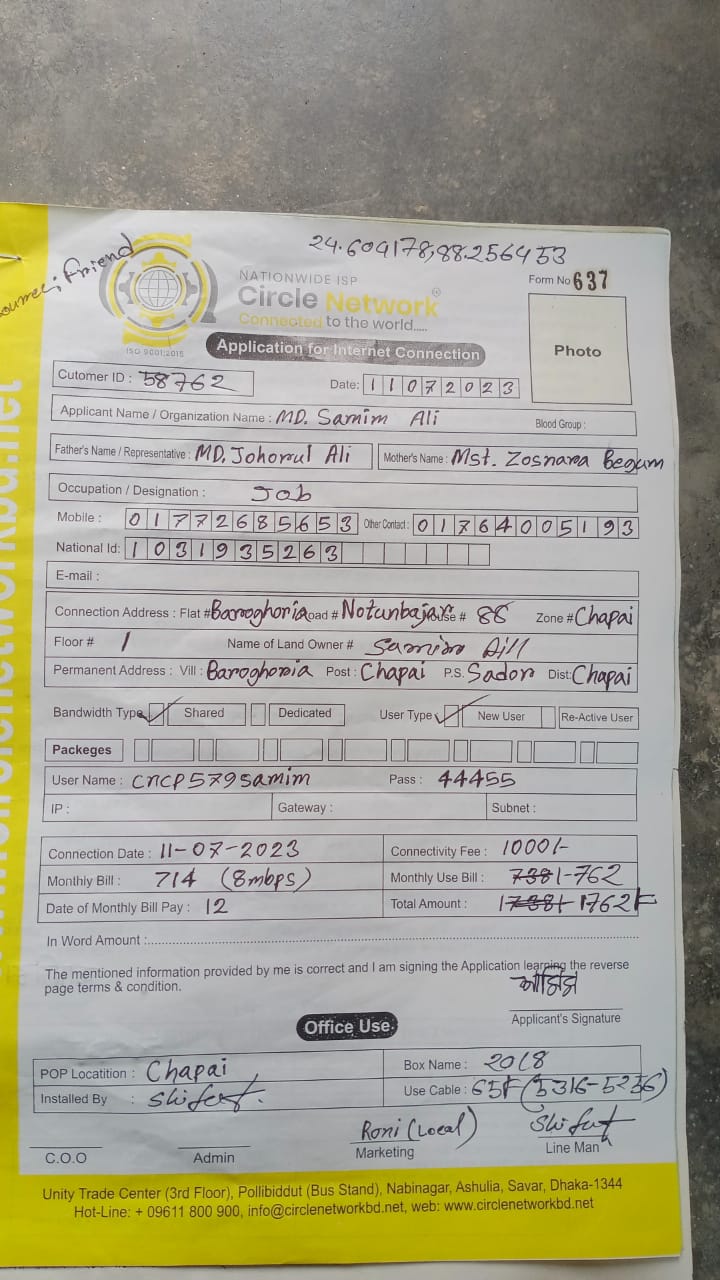 24.604178,88.256453
Friend
NATIONWIDE ISP
Form No 637
Circle Network
Connected to the world.....
ISO 9001:2015
Application for Internet Connection
Photo
Cutomer ID : 58762
Date: 11072023
Applicant Name / Organization Name : MD. Samim Ali Blood Group :
Father's Name / Representative : MD. Johorul Ali Mother's Name : Mst. Zosnara Begum
Occupation / Designation : Job
Mobile : 01772685653 Other Contact : 01764005193
National Id: 1031935263
E-mail :
Connection Address : Flat # Baroghoria Road # Notunbajar House # 88 Zone # Chapai
Floor # 1 Name of Land Owner # Samim
Permanent Address : Vill : Baroghoria Post : Chapai P.S. Sador Dist: Chapai
Bandwidth Type Shared Dedicated User Type New User Re-Active User
Packeges
User Name : cncp579samim Pass : 44455
IP : Gateway : Subnet :
Connection Date : 11-07-2023 Connectivity Fee : 1000/-
Monthly Bill : 714 (8mbps) Monthly Use Bill : 738 1-762
Date of Monthly Bill Pay : 12 Total Amount : 1738/- 1762/-
In Word Amount :
The mentioned information provided by me is correct and I am signing the Application learning the reverse
page terms & condition.
Applicant's Signature
Office Use
POP Locatition : Chapai Box Name : 2018
Installed By : Shifat. Use Cable : 65F (5316-5256)
Roni (Local) Shifat
C.O.O Admin Marketing Line Man
Unity Trade Center (3rd Floor), Pollibiddut (Bus Stand), Nabinagar, Ashulia, Savar, Dhaka-1344
Hot-Line: + 09611 800 900, info@circlenetworkbd.net, web: www.circlenetworkbd.net
www.circlenetworkbd.net